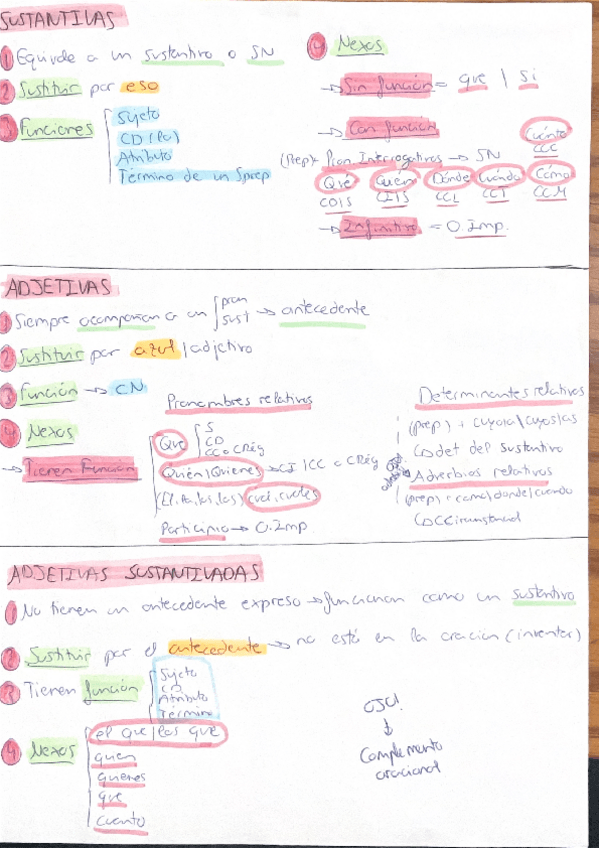 SUSTANTIVAS
1 Equivale a un sustantivo o SN
2 Sustituir por eso
3 Funciones
Sujeto
CD (lo)
Atributo
Término de un Sprep
4 Nexos
→ Sin función = que | si
→ Con función
Cuánto
CCC
(Prep)+ Pron. Interrogativos → SN
Qué Quién Dónde Cuándo Cómo
CCL CCT CCM
→ Infinitivo = O.Imp.
ADJETIVAS
1 Siempre acompañan a un pron sust → antecedente
2 Sustituir por azul | adjetivo
3 Función → CN
4 Nexos
→ Tienen Función
Pronombres relativos
Que
S
CD
CC o CRég
Quién/Quienes → CI | CC o CRég
(El, la, los, las) cual, cuales
Participio → O.Imp
Determinantes relativos
(prep) + cuyo/a/cuyos/as
det del sustantivo
Adverbios relativos
(prep) + como/donde/cuando
CCircunstancial
ADJETIVAS SUSTANTIVADAS
1 No tienen un antecedente expreso → funcionan como un sustantivo
2 Sustituir por el antecedente → no está en la oración (inventar)
3 Tienen función
Sujeto
CD
Atributo
Término
4 Nexos
el que | los que
quien
quienes
que
cuanto
OJO!
↓
Complemento
oracional